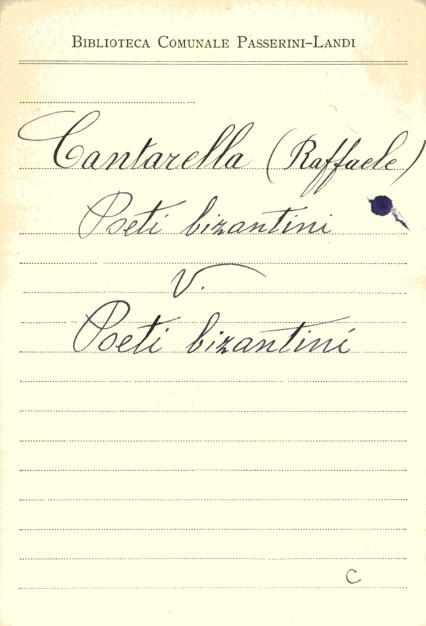 Biblioteca Comunale Passerini-Landi
Cantarella (Raffaele)
Poeti bizantini
V.
Poeti bizantini
C